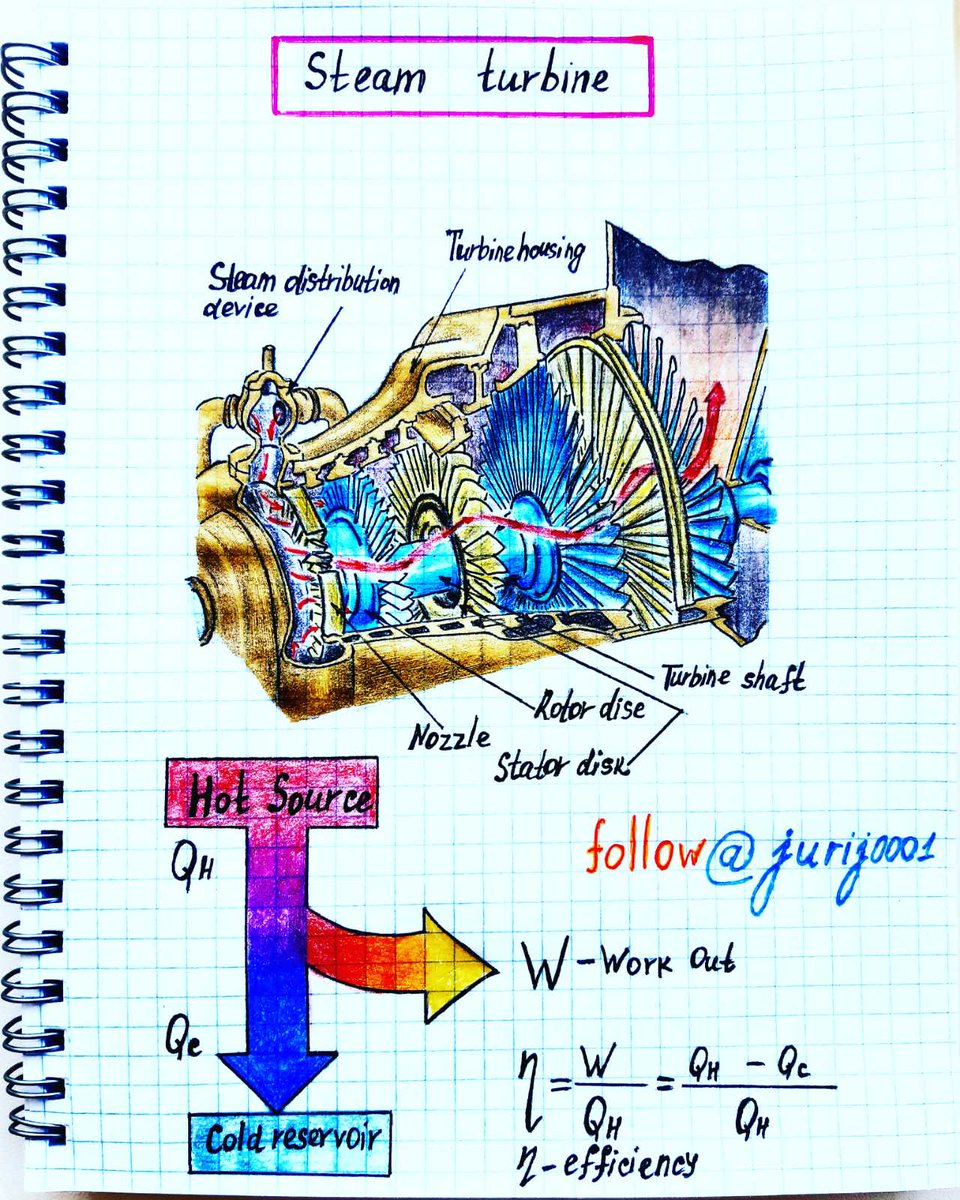 Steam turbine
Turbine housing
Steam distribution
device
Turbine shaft
Rotor disc
Nozzle
Stator disk
Hot Source
QH
follow @jurij0001
W - Work Out
Qc
η = W/QH = QH - Qc/QH
Cold reservoir
η - efficiency